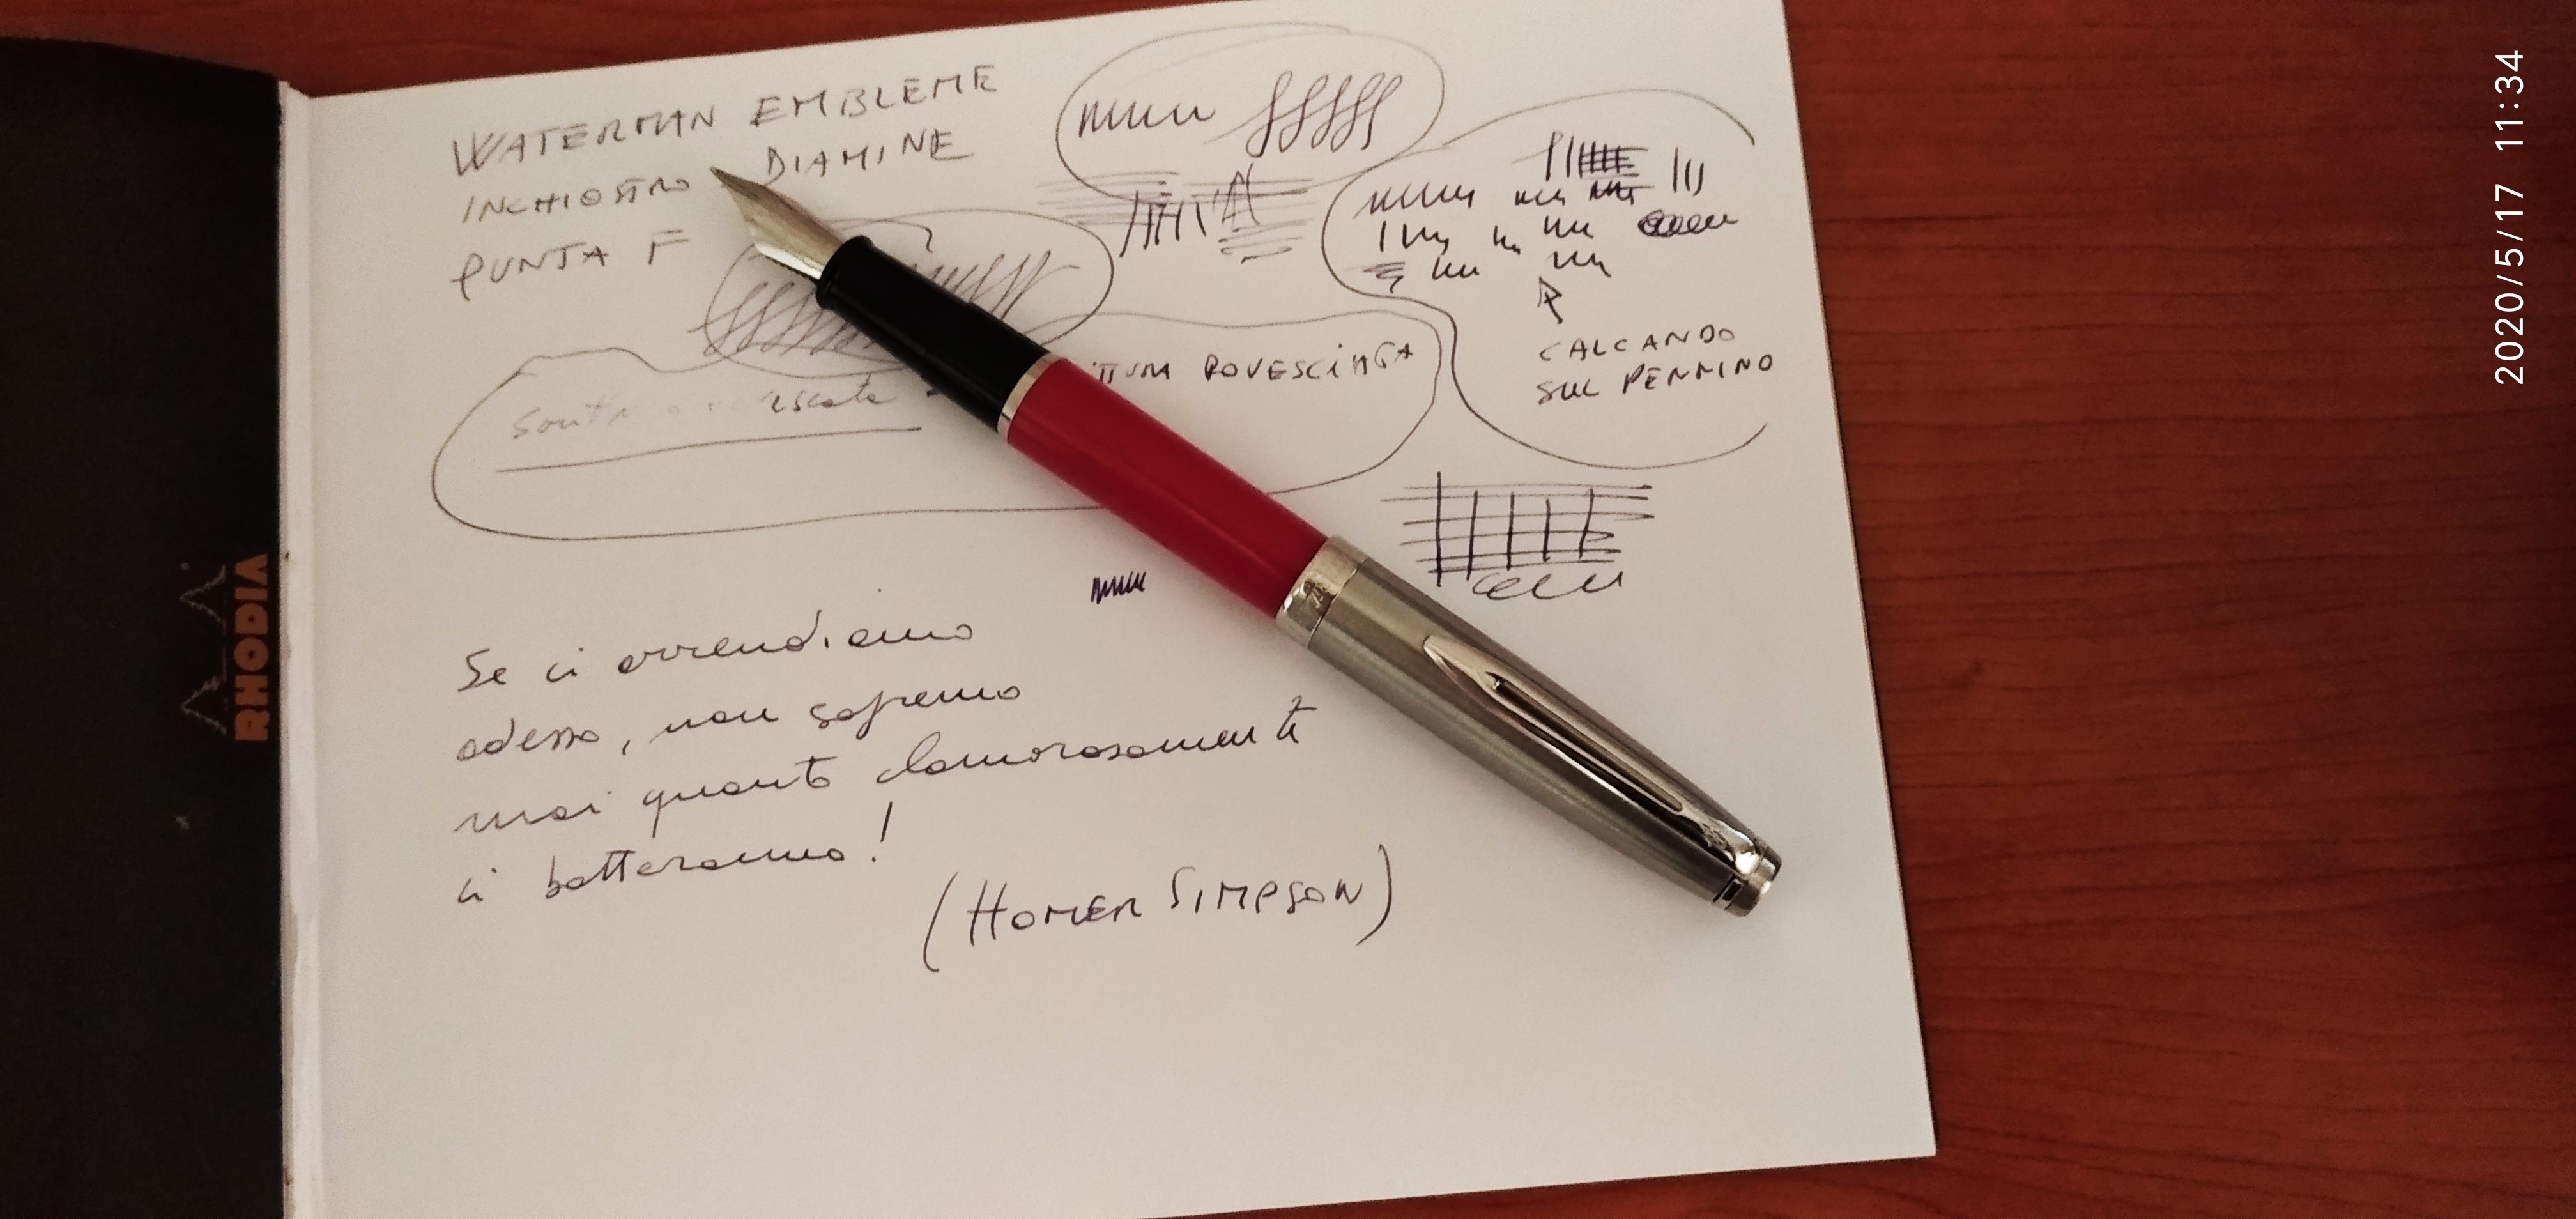 WATERMAN EMBLEME
INCHIOSTRO DIAMINE
PUNTA F
ROVESCIATA
CALCANDO
SUL PENNINO
Se ci arrendiamo
adesso, non sapremo
mai quanto clamorosamente
ci batteranno!
(HOMER SIMPSON)
RHODIA
2020/5/17 11:34